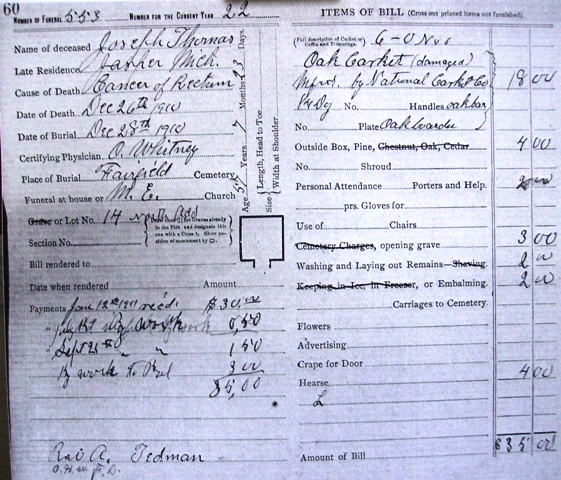 60
NUMBER OF FUNERAL 553 NUMBER FOR THE CURRENT YEAR 22
Name of deceased Joseph Thomas
Late Residence Jasper Mch.
Cause of Death Cancer of Rectum
Date of Death Dec 26th 1910
Date of Burial Dec 28th 1910
Certifying Physician O. Whitney
Place of Burial Fairfield Cemetery
Funeral at house or M. E. Church
Grave or Lot No. 14 North Add
Section No.
Bill rendered to
Date when rendered Amount
Payments June 12th 1911 recd $30.00
.50
Sept 21st " " 1 50
By work to Bal 3 00
35,00
Rev A. Tedman
Age Years Months Days.
Size Length, Head to Toe
Width at Shoulder
ITEMS OF BILL (Cross out printed items not furnished).
(Full description of Casket or Coffin and Trimmings.) 6-0
Oak Casket (damaged)
Mfrd. by National Casket Co 18 00
No. Handles oak bar
No. Plate
Outside Box, Pine, Chestnut, Oak, Cedar 4 00
No. Shroud
Personal Attendance Porters and Help. 2 00
prs. Gloves for
Use of Chairs
Cemetery Charges, opening grave 3 00
Washing and Laying out Remains—Shaving. 2 00
Keeping in Ice, in Freezer, or Embalming. 2 00
Carriages to Cemetery.
Flowers
Advertising
Crape for Door
Hearse 4 00
Amount of Bill $35 00